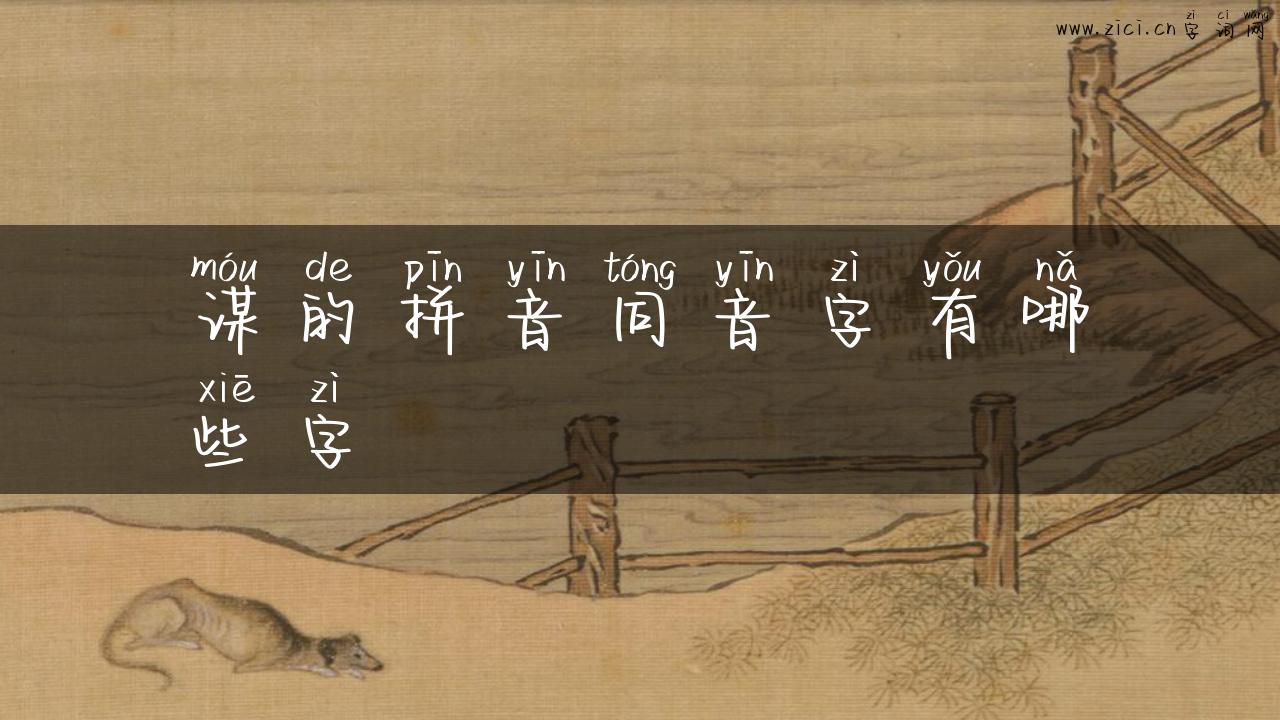 zì cí wǎng
www.zici.cn 字词网
móu de pīn yīn tóng yīn zì yǒu nǎ
谋的拼音同音字有哪
xiē zì
些字